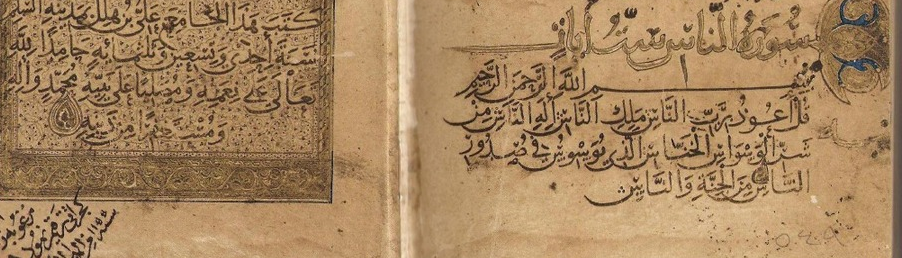 سُورَةُ النَّاسِ سِتُّ آيَاتٍ
بِسْمِ اللَّهِ الرَّحْمَنِ الرَّحِيمِ
قُلْ أَعُوذُ بِرَبِّ النَّاسِ مَلِكِ النَّاسِ إِلَهِ النَّاسِ مِنْ
شَرِّ الْوَسْوَاسِ الْخَنَّاسِ الَّذِي يُوَسْوِسُ فِي صُدُورِ
النَّاسِ مِنَ الْجِنَّةِ وَالنَّاسِ
كتب هذا الجامع علي بن هلال بمدينة السلم
سنة احدى وتسعين وثلثمائة حامدا لله
تعالى على نعمه ومصليا على نبيه محمد وآله
ومستغفرا من ذنبه